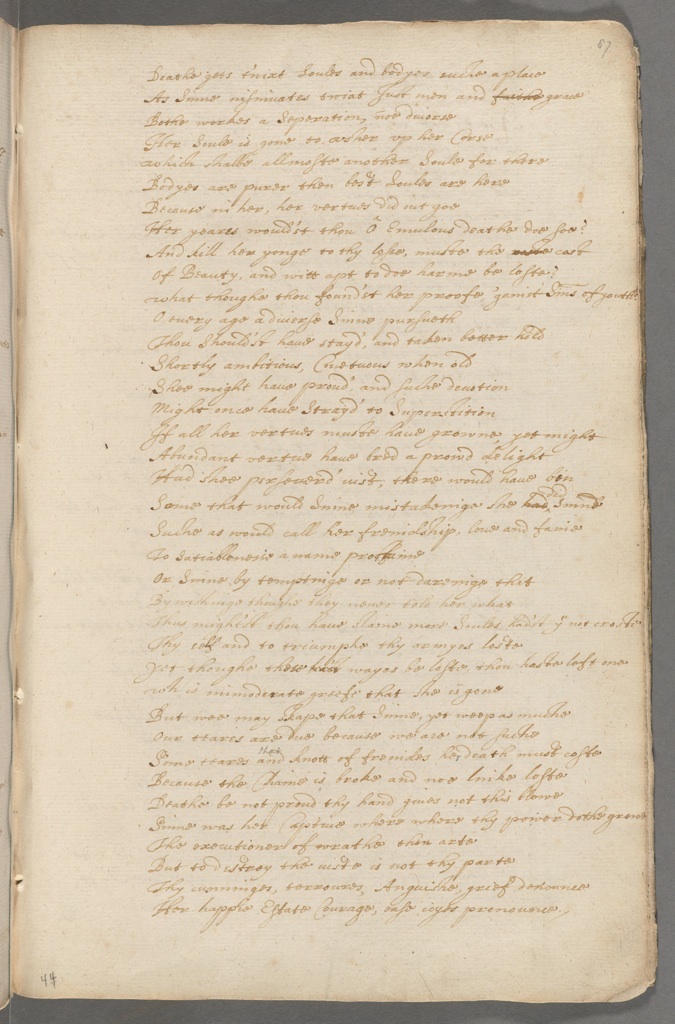 67
Deathe gets t'wixt Soules and bodyes suche a place
As Sinne insinuates twixt Just men and grace
Bothe workes a Seperation, noe diuorse
Her Soule is gone to vsher vp her Corse
which shalbe allmoste another Soule for there
Bodyes are purer then best Soules are here
Because in her, her vertues did out goe
Her yeares would'st thou Ô Emulous deathe doe soe?
And kill her yonge to thy losse, muste the cost
Of Beauty, and witt apt to doe harme be loste?
what thoughe thou found'st her proofe, 'gainst Sinns of youthe
O, euery age a diuerse Sinne pursueth
Thou Should'st haue stayd', and taken better hold
Shortly ambitious, Couetuous when old
Shee might haue proud', and suche deuotion
Might once haue Strayd' to Superstition
If all her vertues muste haue growne, yet might
Abundant vertue haue bred a prowd delight
Had shee perseuerd' iust, there would haue bin
Some that would Sinne mistakeinge she did Sinne
Suche as would call her freindship, loue and faine
To Sociablenesse a name prophane
Or Sinne by temptinge or not dareinge that
By wishinge thoughe they neuer told her what
Thus might'st thou haue Slaine more Soules, had'st y not croste
Thy self and to triumphe thy armyes loste
Yet thoughe these wayes be loste, thou haste left one
wh is immoderate greefe that she is gone
But wee may Skape that Sinne, yet weep as muche
Our teares are due because we are not suche
Some teares that knott of freindes her death must coste
Because the Chaine is broke and noe linke loste
Deathe be not proud thy hand giues not this blowe
Sinne was her Captiue where where thy power dothe growe
The executioner of wrathe thou arte
But to distroy the iuste is not thy parte
Thy comminges, terroures, Anguishe, grief denounce
Her happie Estate Courage, ease ioyes pronounce.
44